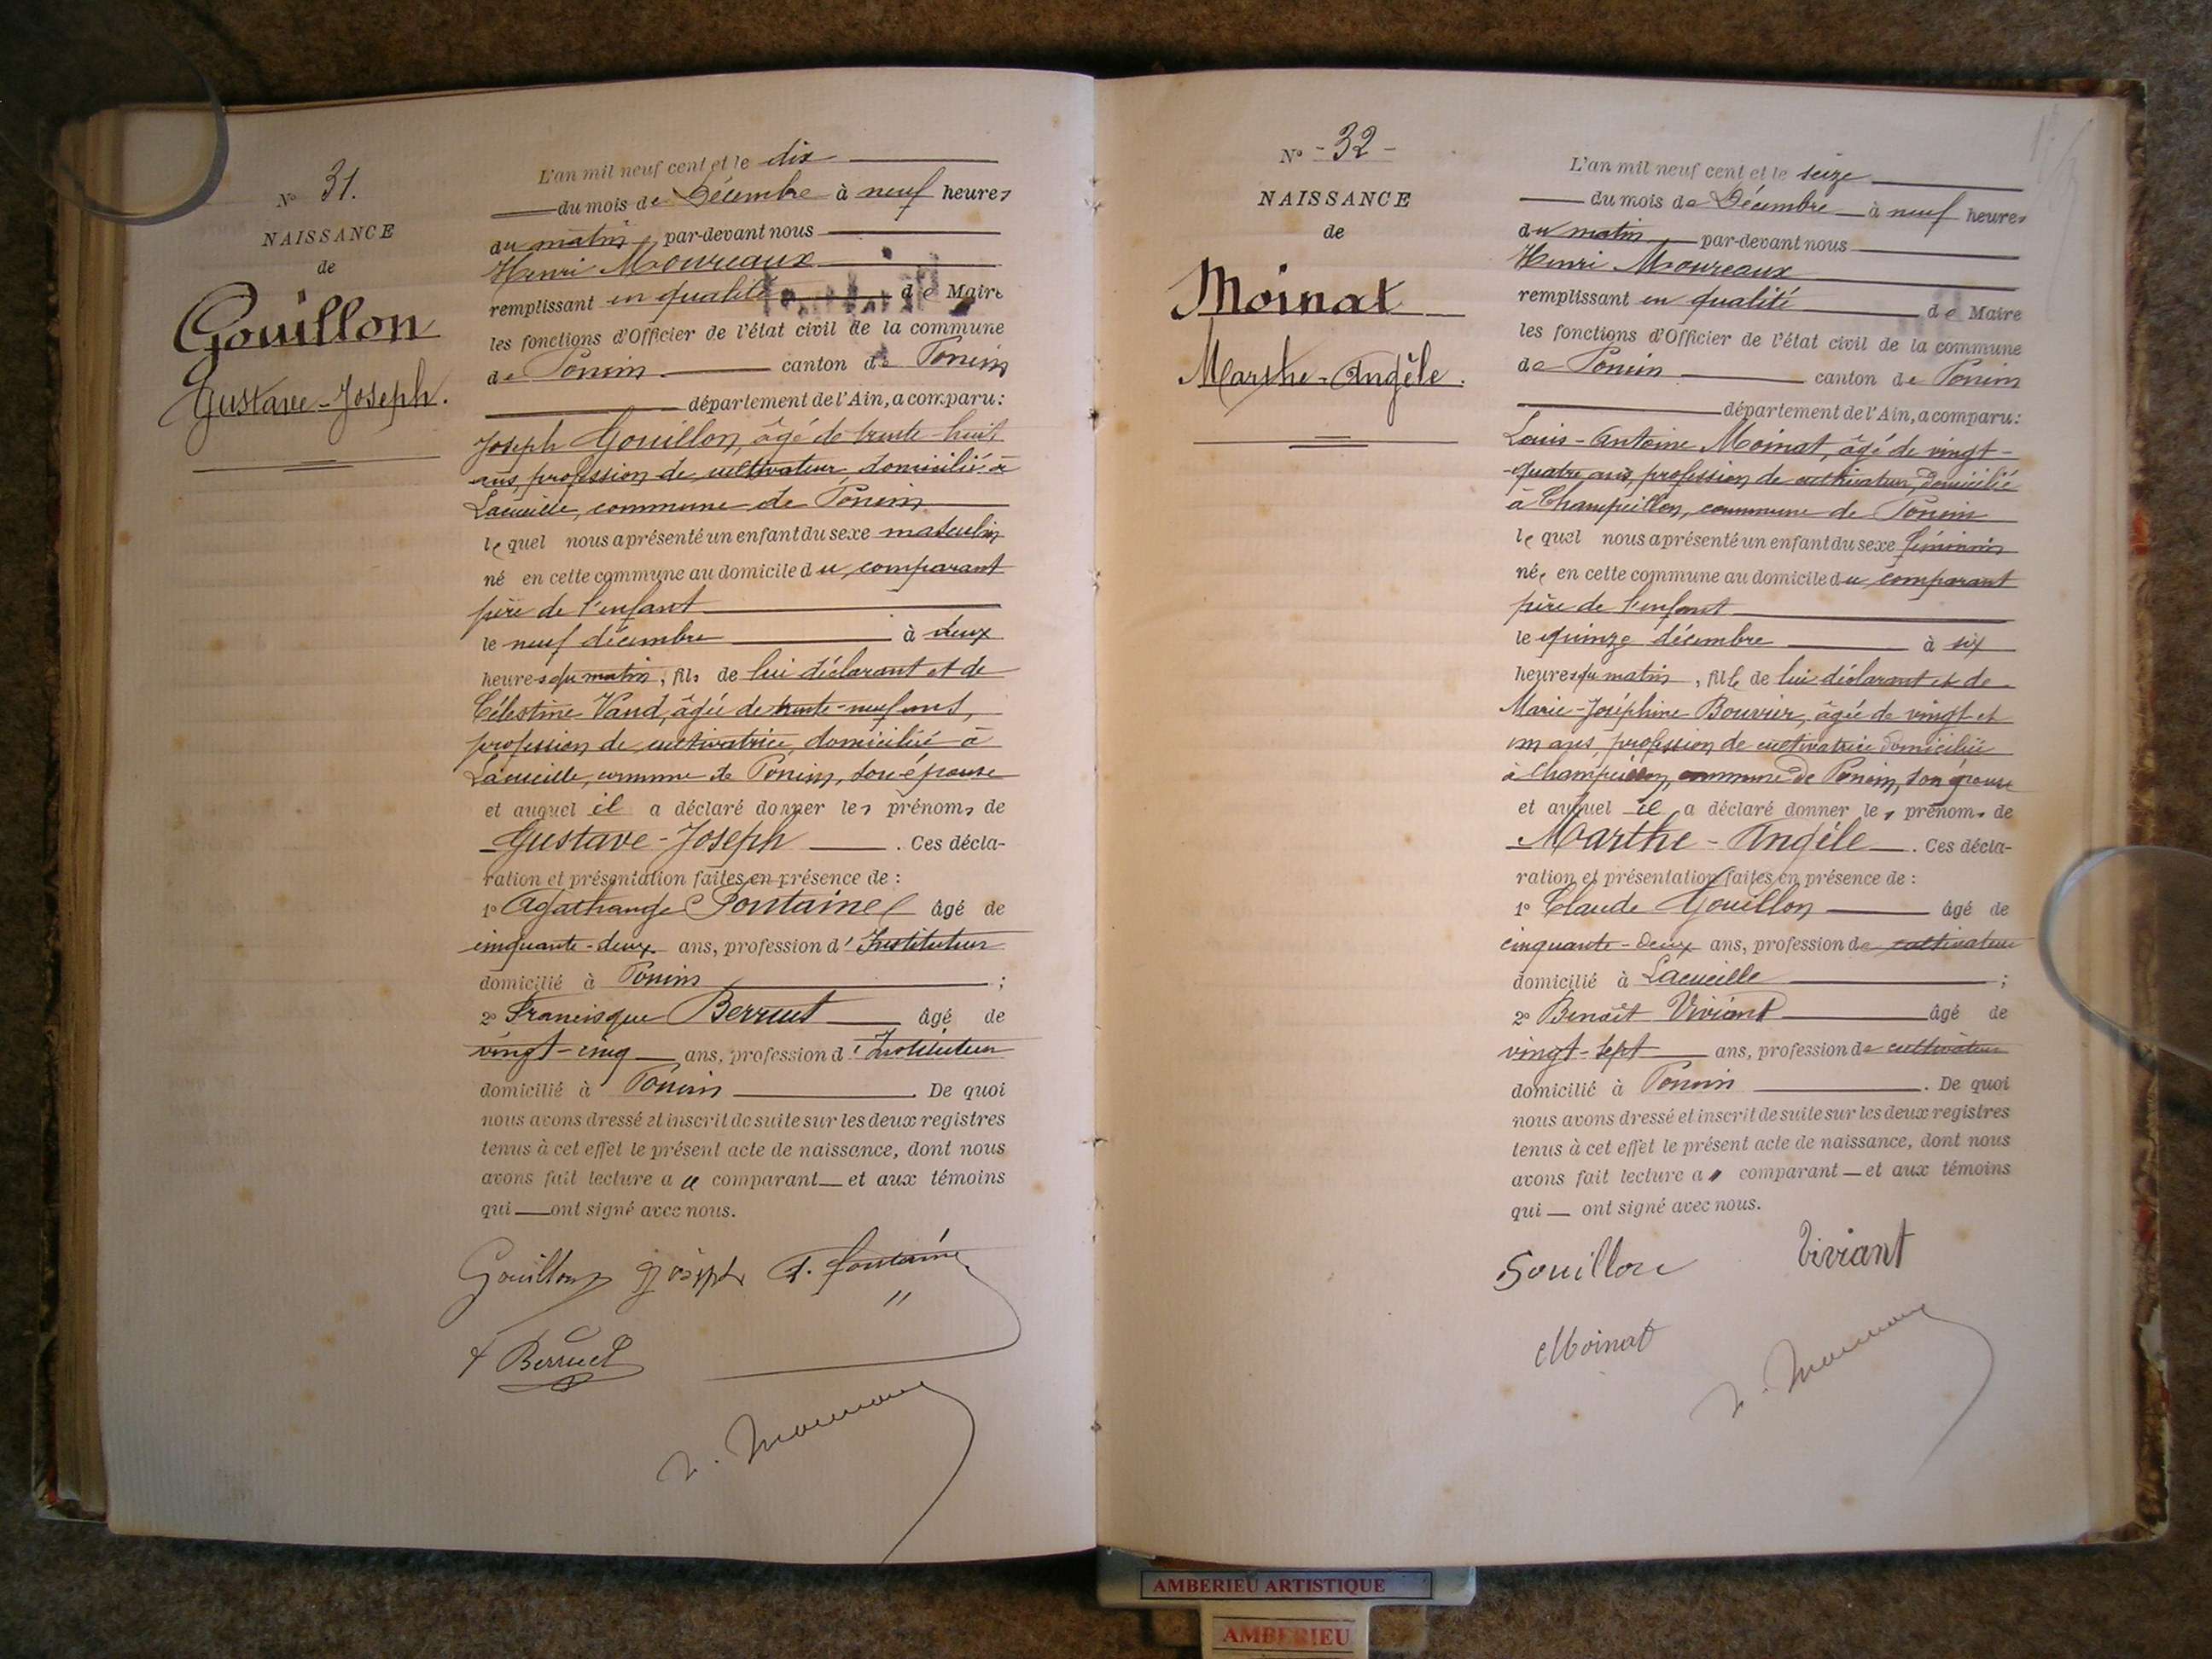 N° 31.
NAISSANCE
de
Gouillon
Gustave-Joseph.
L'an mil neuf cent et le dix
du mois de Décembre à neuf heures
du matin par-devant nous
Henri Moureaux
remplissant en qualité de Maire
les fonctions d'Officier de l'état civil de la commune
de Poncin canton de Poncin
département de l'Ain, a comparu:
Joseph Gouillon, âgé de trente-huit
ans, profession de cultivateur domicilié à
Lacueille, commune de Poncin
lequel nous a présenté un enfant du sexe masculin
né en cette commune au domicile du comparant
père de l'enfant
le neuf décembre à deux
heures du matin, fils de lui déclarant et de
Célestine Vand, âgée de trente-neuf ans,
profession de cultivatrice, domiciliée à
Lacueille, commune de Poncin, son épouse
et auquel il a déclaré donner les prénoms de
Gustave-Joseph. Ces décla-
ration et présentation faites en présence de :
1° Agathange Fontaine âgé de
cinquante-deux ans, profession d'Instituteur
domicilié à Poncin ;
2° Francisque Berruet âgé de
vingt-cinq ans, profession d'Instituteur
domicilié à Poncin. De quoi
nous avons dressé et inscrit de suite sur les deux registres
tenus à cet effet le présent acte de naissance, dont nous
avons fait lecture au comparant et aux témoins
qui ont signé avec nous.
Gouillon Joseph A. Fontaine
F Berruet
H. Moureaux
N° - 32 -
NAISSANCE
de
Moinat
Marthe-Angèle.
L'an mil neuf cent et le seize
du mois de Décembre à neuf heures
du matin par-devant nous
Henri Moureaux
remplissant en qualité de Maire
les fonctions d'Officier de l'état civil de la commune
de Poncin canton de Poncin
département de l'Ain, a comparu:
Louis-Antoine Moinat, âgé de vingt-
-quatre ans, profession de cultivateur, domicilié
à Champeillon, commune de Poncin
lequel nous a présenté un enfant du sexe féminin
née en cette commune au domicile du comparant
père de l'enfant
le quinze décembre à six
heures du matin, fille de lui déclarant et de
Marie-Joséphine Bouvier, âgée de vingt et
un ans, profession de cultivatrice domiciliée
à Champeillon, commune de Poncin, son épouse
et auquel il a déclaré donner les prénoms de
Marthe-Angèle. Ces décla-
ration et présentation faites en présence de :
1° Claude Gouillon âgé de
cinquante-deux ans, profession de cultivateur
domicilié à Lacueille ;
2° Benoît Viviant âgé de
vingt-sept ans, profession de cultivateur
domicilié à Poncin. De quoi
nous avons dressé et inscrit de suite sur les deux registres
tenus à cet effet le présent acte de naissance, dont nous
avons fait lecture a comparant et aux témoins
qui ont signé avec nous.
Gouillon Viviant
Moinat
H. Moureaux
AMBERIEU ARTISTIQUE
AMBERIEU